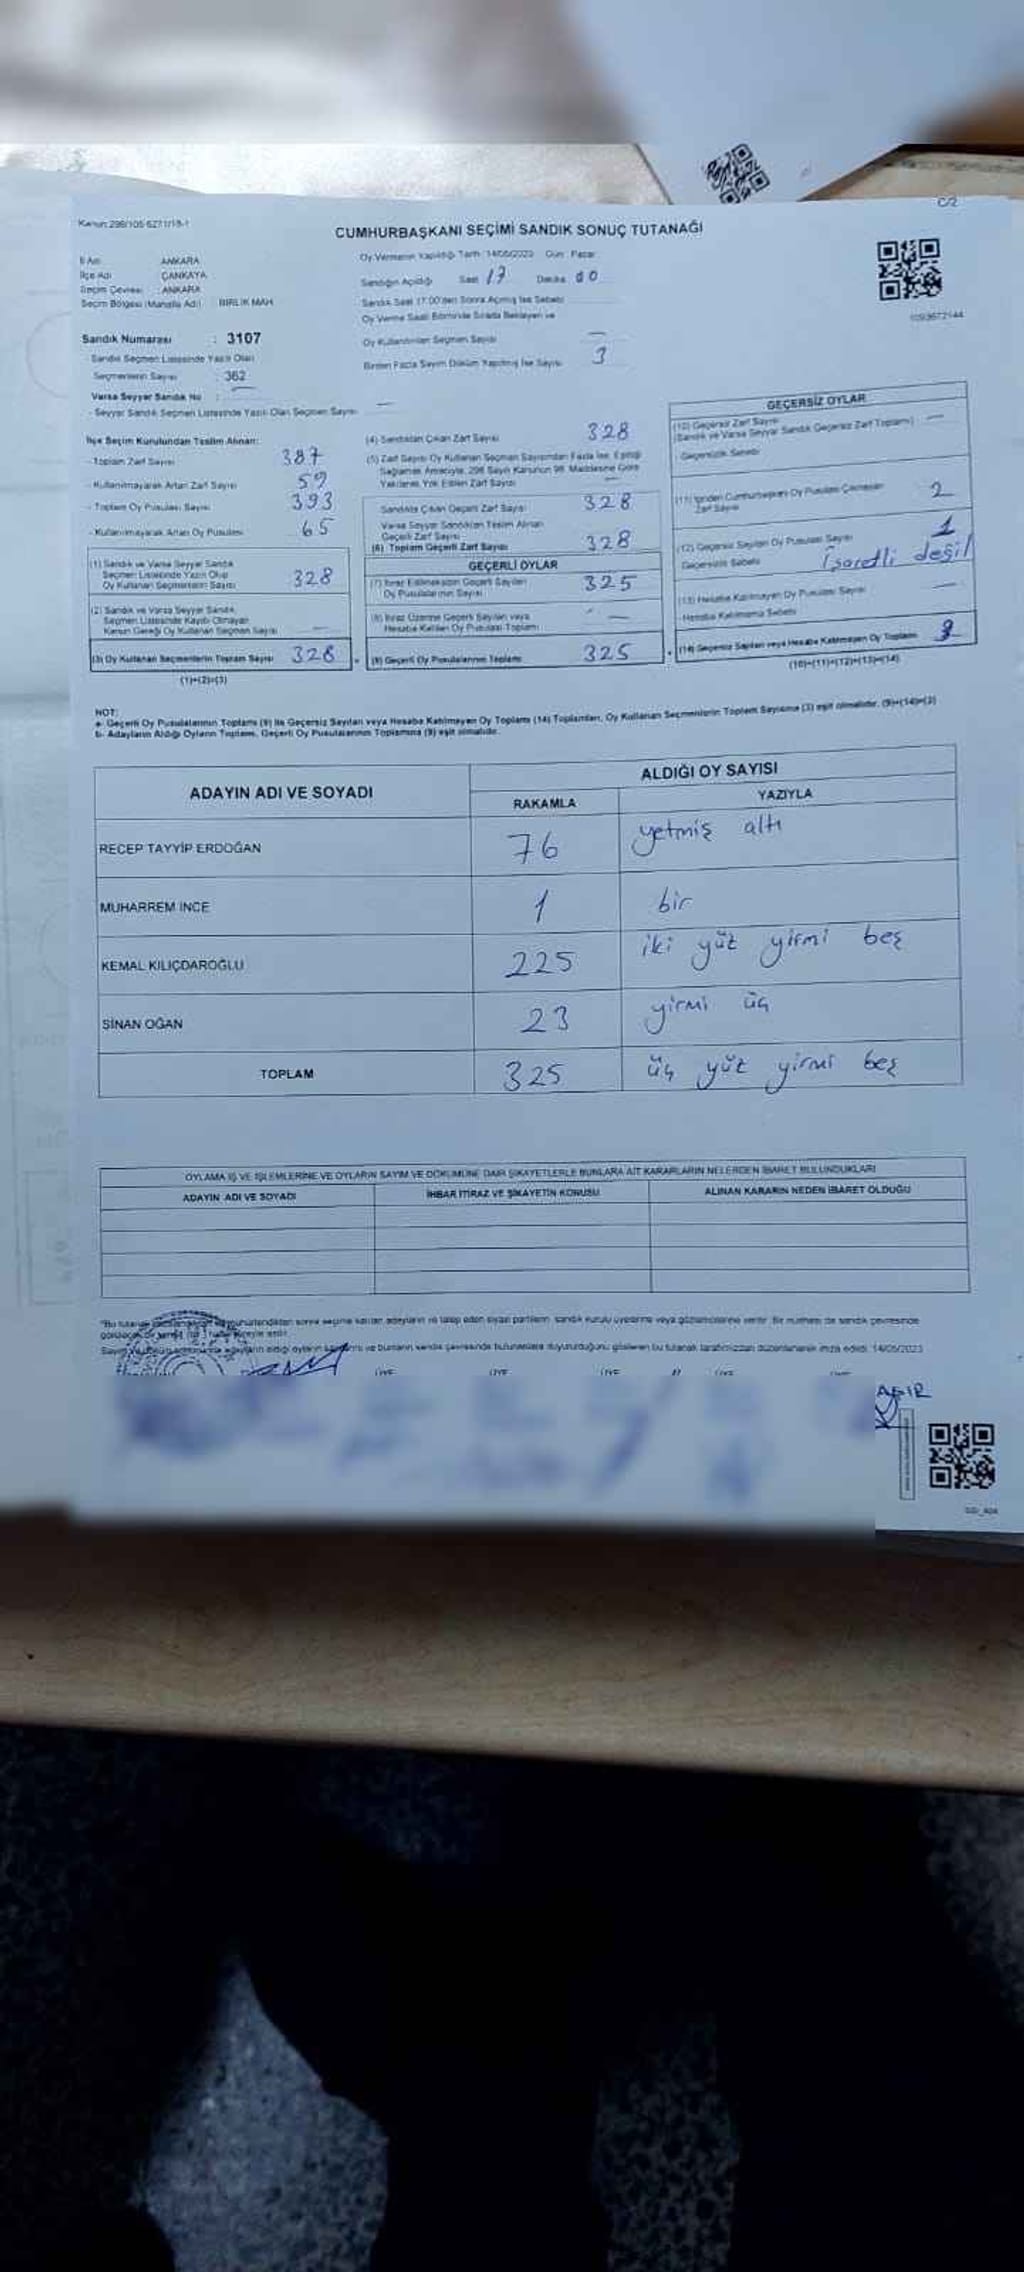 Kanun:298/105-6271/18-1
C/2
CUMHURBAŞKANI SEÇİMİ SANDIK SONUÇ TUTANAĞI
İl Adı : ANKARA
İlçe Adı : ÇANKAYA
Seçim Çevresi : ANKARA
Seçim Bölgesi (Mahalle Adı) : BİRLİK MAH.
Oy Vermenin Yapıldığı Tarih: 14/05/2023 Gün: Pazar
Sandığın Açıldığı Saat 17 Dakika 00
Sandık Saat 17:00'den Sonra Açılmış İse Sebebi
Oy Verme Saati Bitiminde Sırada Bekleyen ve
Oy Kullandırılan Seçmen Sayısı —
Birden Fazla Sayım Döküm Yapılmış İse Sayısı 3
Sandık Numarası : 3107
Sandık Seçmen Listesinde Yazılı Olan
Seçmenlerin Sayısı : 362
Varsa Seyyar Sandık No : —
- Seyyar Sandık Seçmen Listesinde Yazılı Olan Seçmen Sayısı —
İlçe Seçim Kurulundan Teslim Alınan:
- Toplam Zarf Sayısı 387
- Kullanılmayarak Artan Zarf Sayısı 59
- Toplam Oy Pusulası Sayısı 393
- Kullanılmayarak Artan Oy Pusulası 65
(1) Sandık ve Varsa Seyyar Sandık
Seçmen Listesinde Yazılı Olup
Oy Kullanan Seçmenlerin Sayısı 328
(2) Sandık ve Varsa Seyyar Sandık
Seçmen Listesinde Kaydı Olmayan
Kanun Gereği Oy Kullanan Seçmen Sayısı —
(3) Oy Kullanan Seçmenlerin Toplam Sayısı 328
(1)+(2)=(3)
(4) Sandıktan Çıkan Zarf Sayısı 328
(5) Zarf Sayısı Oy Kullanan Seçmen Sayısından Fazla İse, Eşitliği
Sağlamak Amacıyla, 298 Sayılı Kanunun 98. Maddesine Göre
Yakılarak Yok Edilen Zarf Sayısı —
Sandıkta Çıkan Geçerli Zarf Sayısı 328
Varsa Seyyar Sandıktan Teslim Alınan
Geçerli Zarf Sayısı
(6) Toplam Geçerli Zarf Sayısı 328
GEÇERLİ OYLAR
(7) İtiraz Edilmeksizin Geçerli Sayılan
Oy Pusulalarının Sayısı 325
(8) İtiraz Üzerine Geçerli Sayılan veya
Hesaba Katılan Oy Pusulası Toplamı —
(9) Geçerli Oy Pusulalarının Toplamı 325
GEÇERSİZ OYLAR
(10) Geçersiz Zarf Sayısı —
(Sandık ve Varsa Seyyar Sandık Geçersiz Zarf Toplamı)
Geçersizlik Sebebi
(11) İçinden Cumhurbaşkanı Oy Pusulası Çıkmayan
Zarf Sayısı 2
(12) Geçersiz Sayılan Oy Pusulası Sayısı 1
Geçersizlik Sebebi İşaretli değil
(13) Hesaba Katılmayan Oy Pusulası Sayısı —
Hesaba Katılmama Sebebi
(14) Geçersiz Sayılan veya Hesaba Katılmayan Oy Toplamı 3
(10)+(11)+(12)+(13)=(14)
NOT:
a- Geçerli Oy Pusulalarının Toplamı (9) ile Geçersiz Sayılan veya Hesaba Katılmayan Oy Toplamı (14) Toplamları, Oy Kullanan Seçmenlerin Toplam Sayısına (3) eşit olmalıdır. (9)+(14)=(3)
b- Adayların Aldığı Oyların Toplamı, Geçerli Oy Pusulalarının Toplamına (9) eşit olmalıdır.
ADAYIN ADI VE SOYADI ALDIĞI OY SAYISI
RAKAMLA YAZIYLA
RECEP TAYYİP ERDOĞAN 76 yetmiş altı
MUHARREM İNCE 1 bir
KEMAL KILIÇDAROĞLU 225 iki yüz yirmi beş
SİNAN OĞAN 23 yirmi üç
TOPLAM 325 üç yüz yirmi beş
OYLAMA İŞ VE İŞLEMLERİNE VE OYLARIN SAYIM VE DÖKÜMÜNE DAİR ŞİKAYETLERLE BUNLARA AİT KARARLARIN NELERDEN İBARET BULUNDUKLARI
ADAYIN ADI VE SOYADI İHBAR İTİRAZ VE ŞİKAYETİN KONUSU ALINAN KARARIN NEDEN İBARET OLDUĞU
sonra seçime katılan adayların ve talep eden siyasi partilerin sandık kurulu üyelerine veya gözlemcilerine verilir. Bir nüshası da sandık çevresinde
ve bunların sandık çevresinde bulunanlara duyurulduğunu gösteren bu tutanak tarafımızdan düzenlenerek imza edildi. 14/05/2023
ÜYE ÜYE ÜYE ÜYE